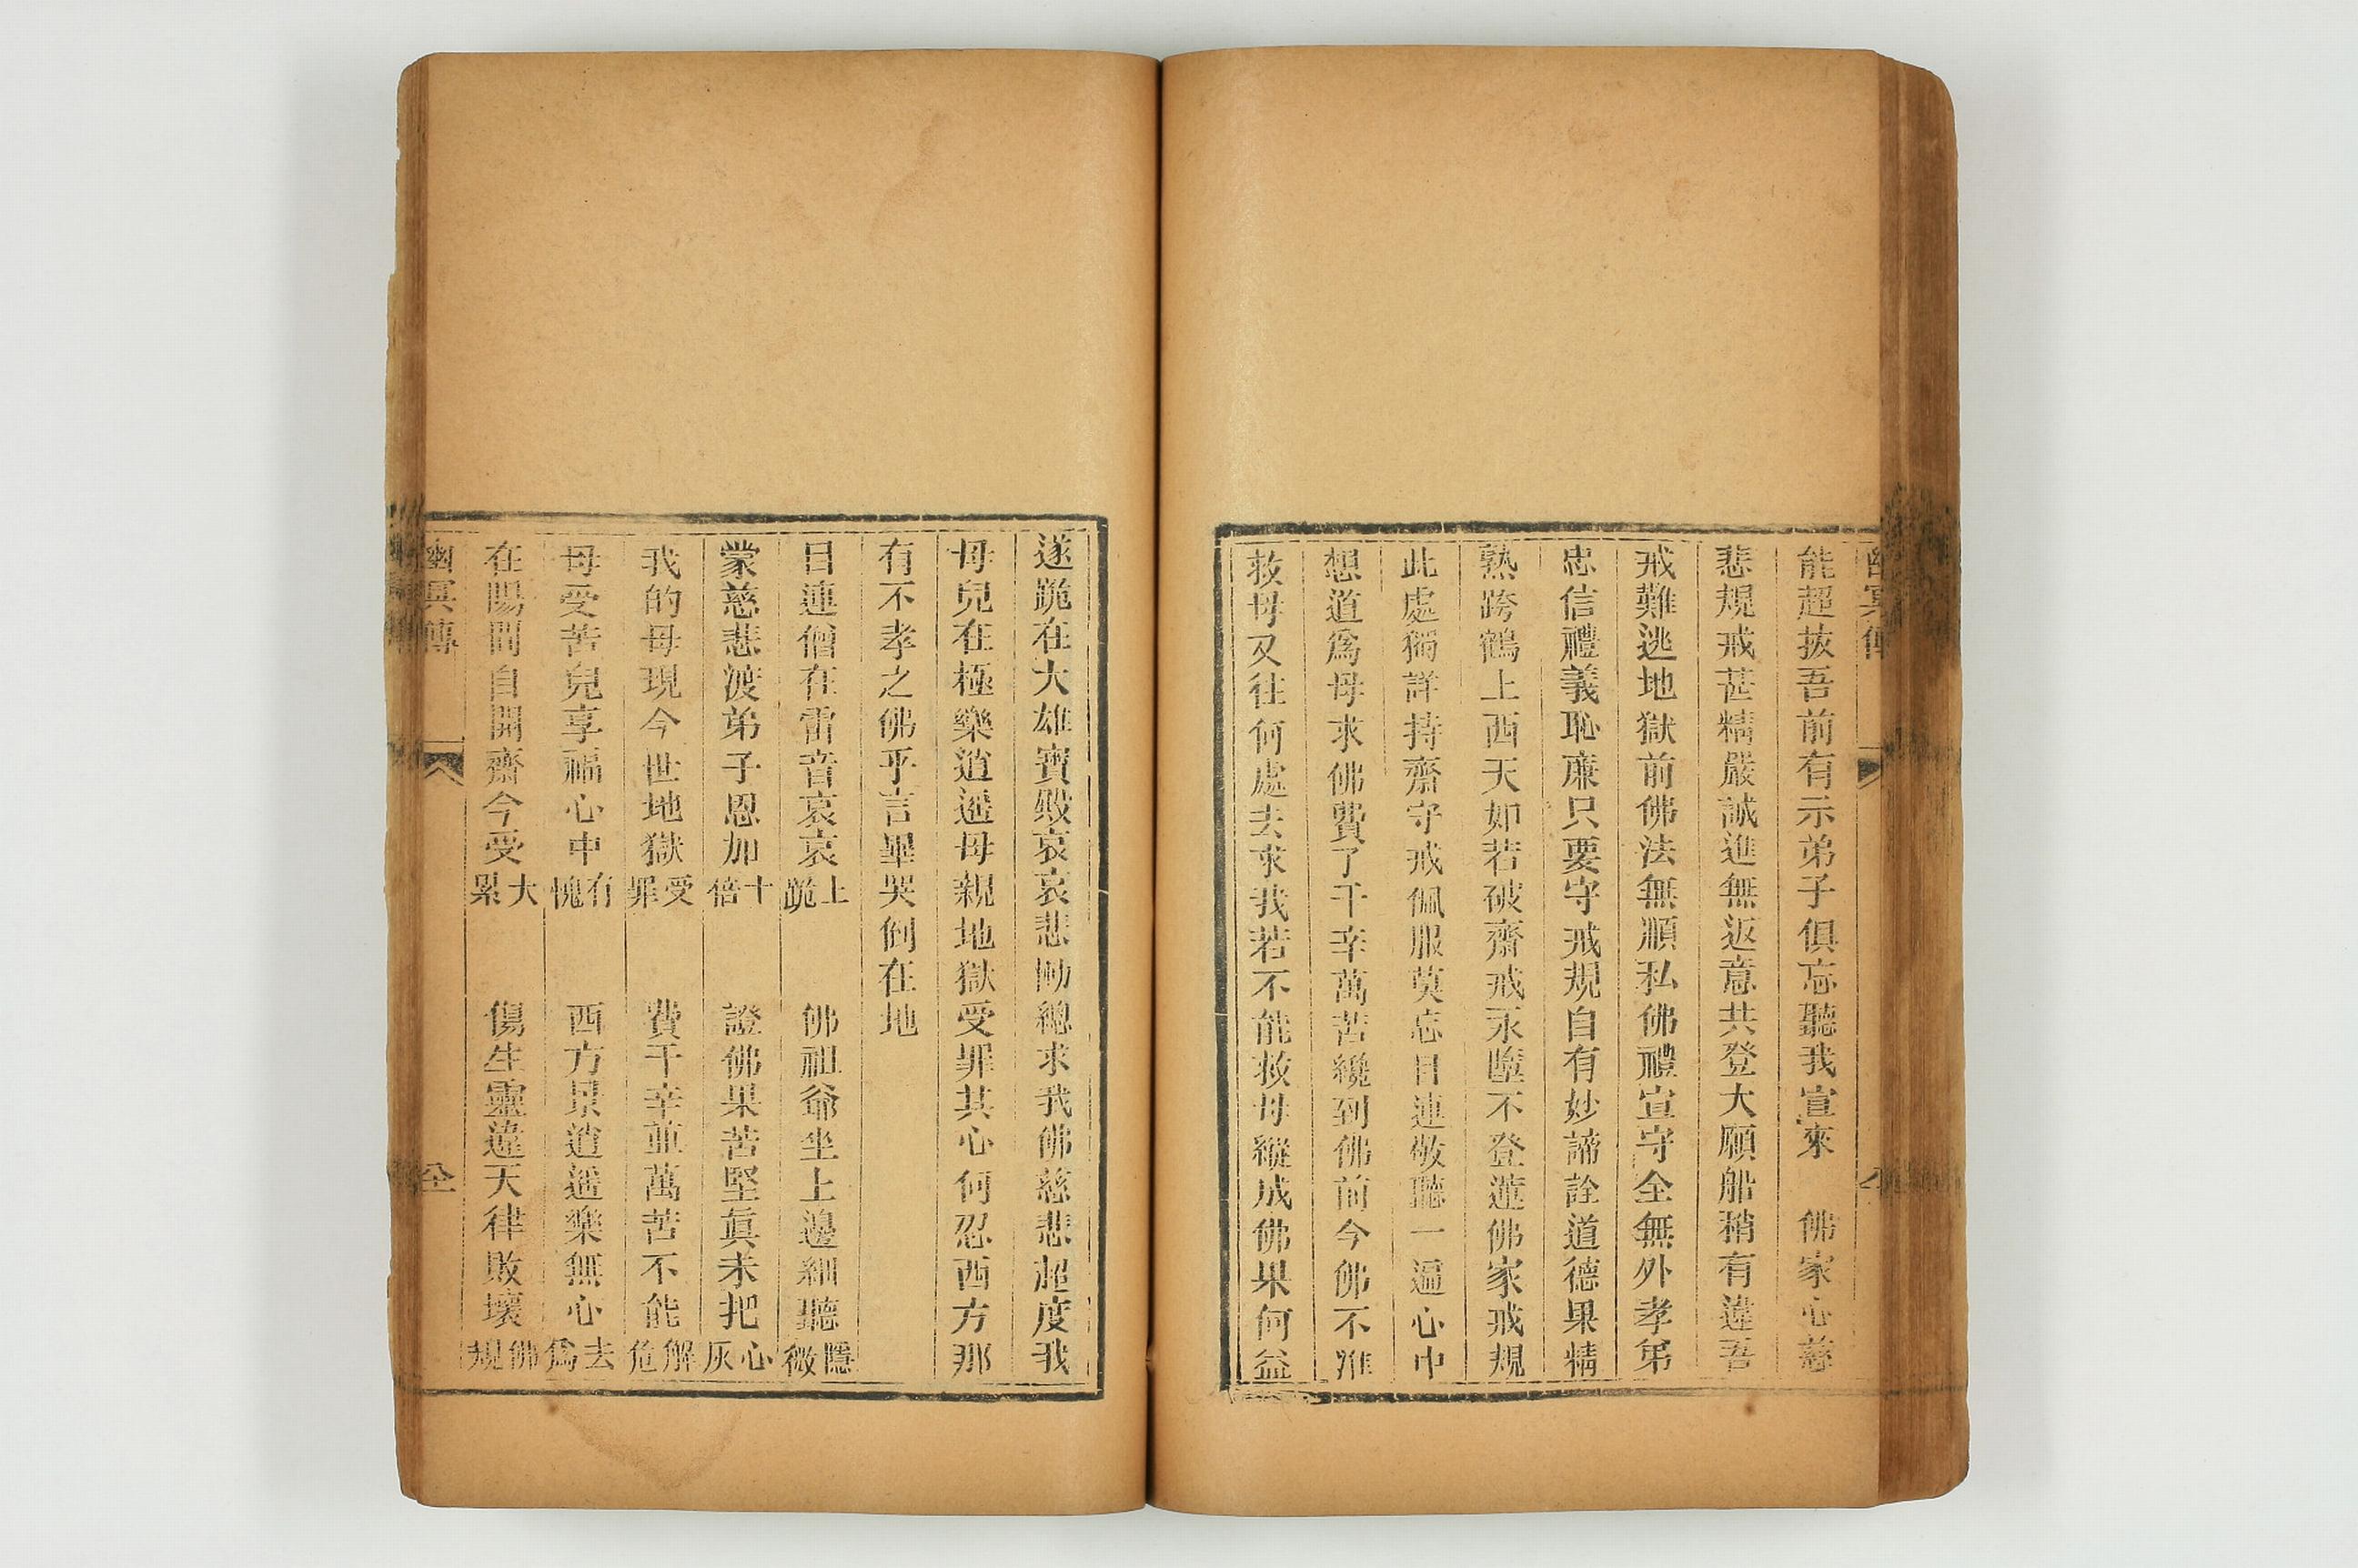 幽冥傳
能超拔吾前有示弟子俱忘聽我宣來 佛家心慈
悲規戒甚精嚴誠進無返意共登大願船稍有違吾
戒難逃地獄前佛法無順私佛禮宣守全無外孝弟
忠信禮義恥廉只要守戒規自有妙諦詮道德果精
熟跨鶴上西天如若破齋戒永墮不登蓮佛家戒規
此處獨詳持齋守戒佩服莫忘目連敬聽一遍心中
想道爲母求佛費了千辛萬苦纔到佛前今佛不准
救母又往何處去求我若不能救母縱成佛果何益
遂跪在大雄寶殿哀哀悲慟總求我佛慈悲超度我
母兒在極樂逍遥母親地獄受罪其心何忍西方那
有不孝之佛乎言畢哭倒在地
目連僧在雷音哀哀上跪 佛祖爺坐上邊細聽隱微
蒙慈悲渡弟子恩加十倍 證佛果苦堅眞未把心灰
我的母現今世地獄受罪 費千辛並萬苦不能解危
母受苦兒享福心中有愧 西方景逍遥樂無心去爲
在陽間自開齋今受大累 傷生靈違天律敗壞佛規
幽冥傳 全